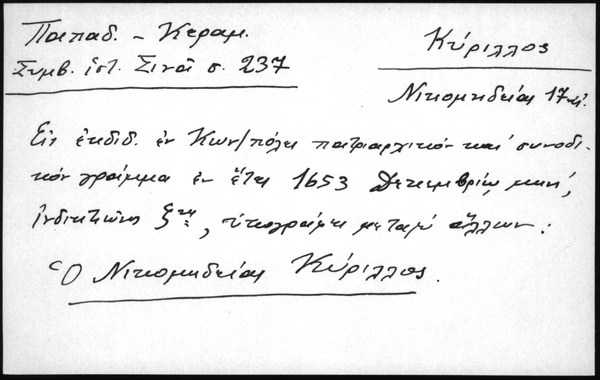 Παπαδ. - Κεραμ.
Συμβ. ἱστ. Σινᾶ σ. 237
Κύριλλος
Νικομηδείας 17 αἰ.
Εἰς ἐκδιδ. ἐν Κων/πόλει πατριαρχικόν καί συνοδι-
κόν γράμμα ἐν ἔτει 1653 Δεκεμβρίῳ μηνί,
ἰνδικτιῶνος ζης, ὑπογράφει μεταξύ ἄλλων:
Ὁ Νικομηδείας Κύριλλος.